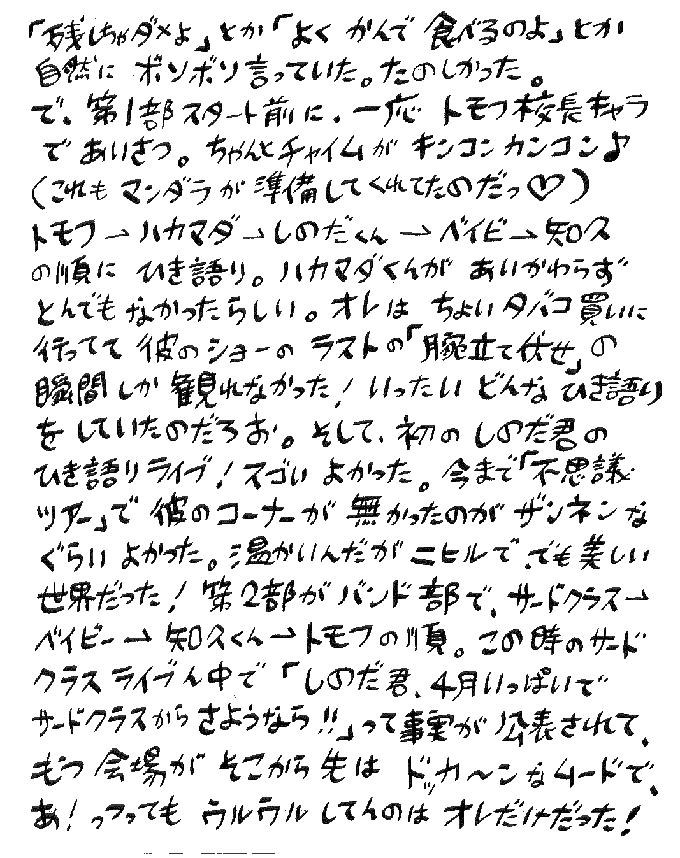 「残しちゃダメよ」とか「よく かんで 食べるのよ」とか
自然に ボソボソ言っていた。たのしかった。
で、第1部スタート前に、一応 トモフ校長キャラ
で あいさつ。ちゃんとチャイムが キンコン カンコン♪
(これも マンダラが準備してくれてたのだっ♡)
トモフ→ハカマダ→しのだくん→ベイビー→知久
の順に ひき語り。ハカマダくんが あいかわらず
とんでもなかったらしい。オレは ちょいタバコ買いに
行ってて 彼のショーの ラストの「腕立て伏せ」の
瞬間しか観れなかった! いったい どんな ひき語り
を していたのだろお。そして、初の しのだ君の
ひき語りライブ! スゴい よかった。今まで「不思議
ツアー」で 彼のコーナーが 無かったのが ザンネンな
ぐらい よかった。温かいんだが ニヒルで、でも美しい
世界だった! 第2部が バンド部で、サードクラス→
ベイビー→ 知久くん→トモフの順。この時のサード
クラス ライブん中で 「しのだ君、4月いっぱいで
サードクラスから さようなら!!」って事実が 公表されて、
もう 会場が そこから先は ドッカ〜ンなムードで、
あ! っつっても ウルウル してんのは オレだけだった!